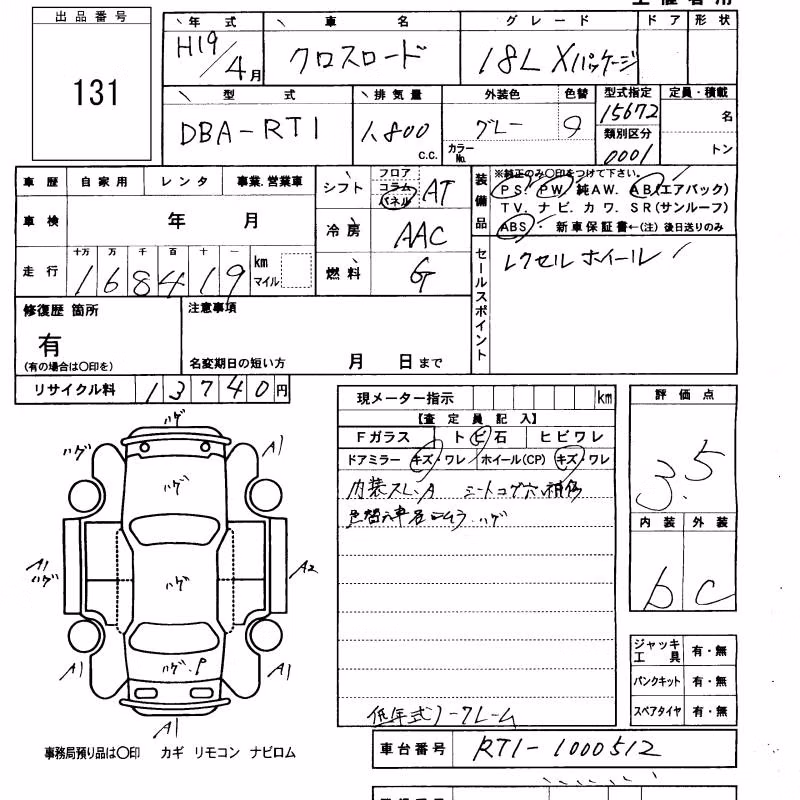 出品番号
131
年式 車名 グレード ドア 形状
H19/4月 クロスロード 18L Xパッケージ
型式 排気量 外装色 色替 型式指定 定員・積載
DBA-RT1 1,800 c.c. グレー カラーNo. 15672 名
類別区分
0001 トン
車歴 自家用 レンタ 事業.営業車
シフト フロア コラム パネル AT
装備品
※純正のみ〇印をつけて下さい。
PS. PW. 純AW. AB(エアバック)
TV. ナビ. カワ. SR(サンルーフ)
ABS・ 新車保証書←(注) 後日送りのみ
車検 年 月
冷房 AAC
走行 十万 万 千 百 十 一
168419 km マイル
燃料 G
セールスポイント
レクセル ホイール
修復歴 箇所
有
(有の場合は〇印を)
注意事項
名変期日の短い方 月 日まで
リサイクル料 13740円
現メーター指示 km
【査定員記入】
Fガラス トビ石 ヒビワレ
ドアミラー キズ・ワレ ホイール(CP) キズ・ワレ
内装スレ.A シートコゲ穴.補修
ハゲ
低年式
評価点
3.5
内装 外装
b C
ハゲ
ハゲ A1
ハゲ
A1 ハゲ ハゲ A2
A1 ハゲ.P A1
A1
ジャッキ工具 有・無
パンクキット 有・無
スペアタイヤ 有・無
事務局預り品は〇印 カギ リモコン ナビロム
車台番号 RT1-1000512